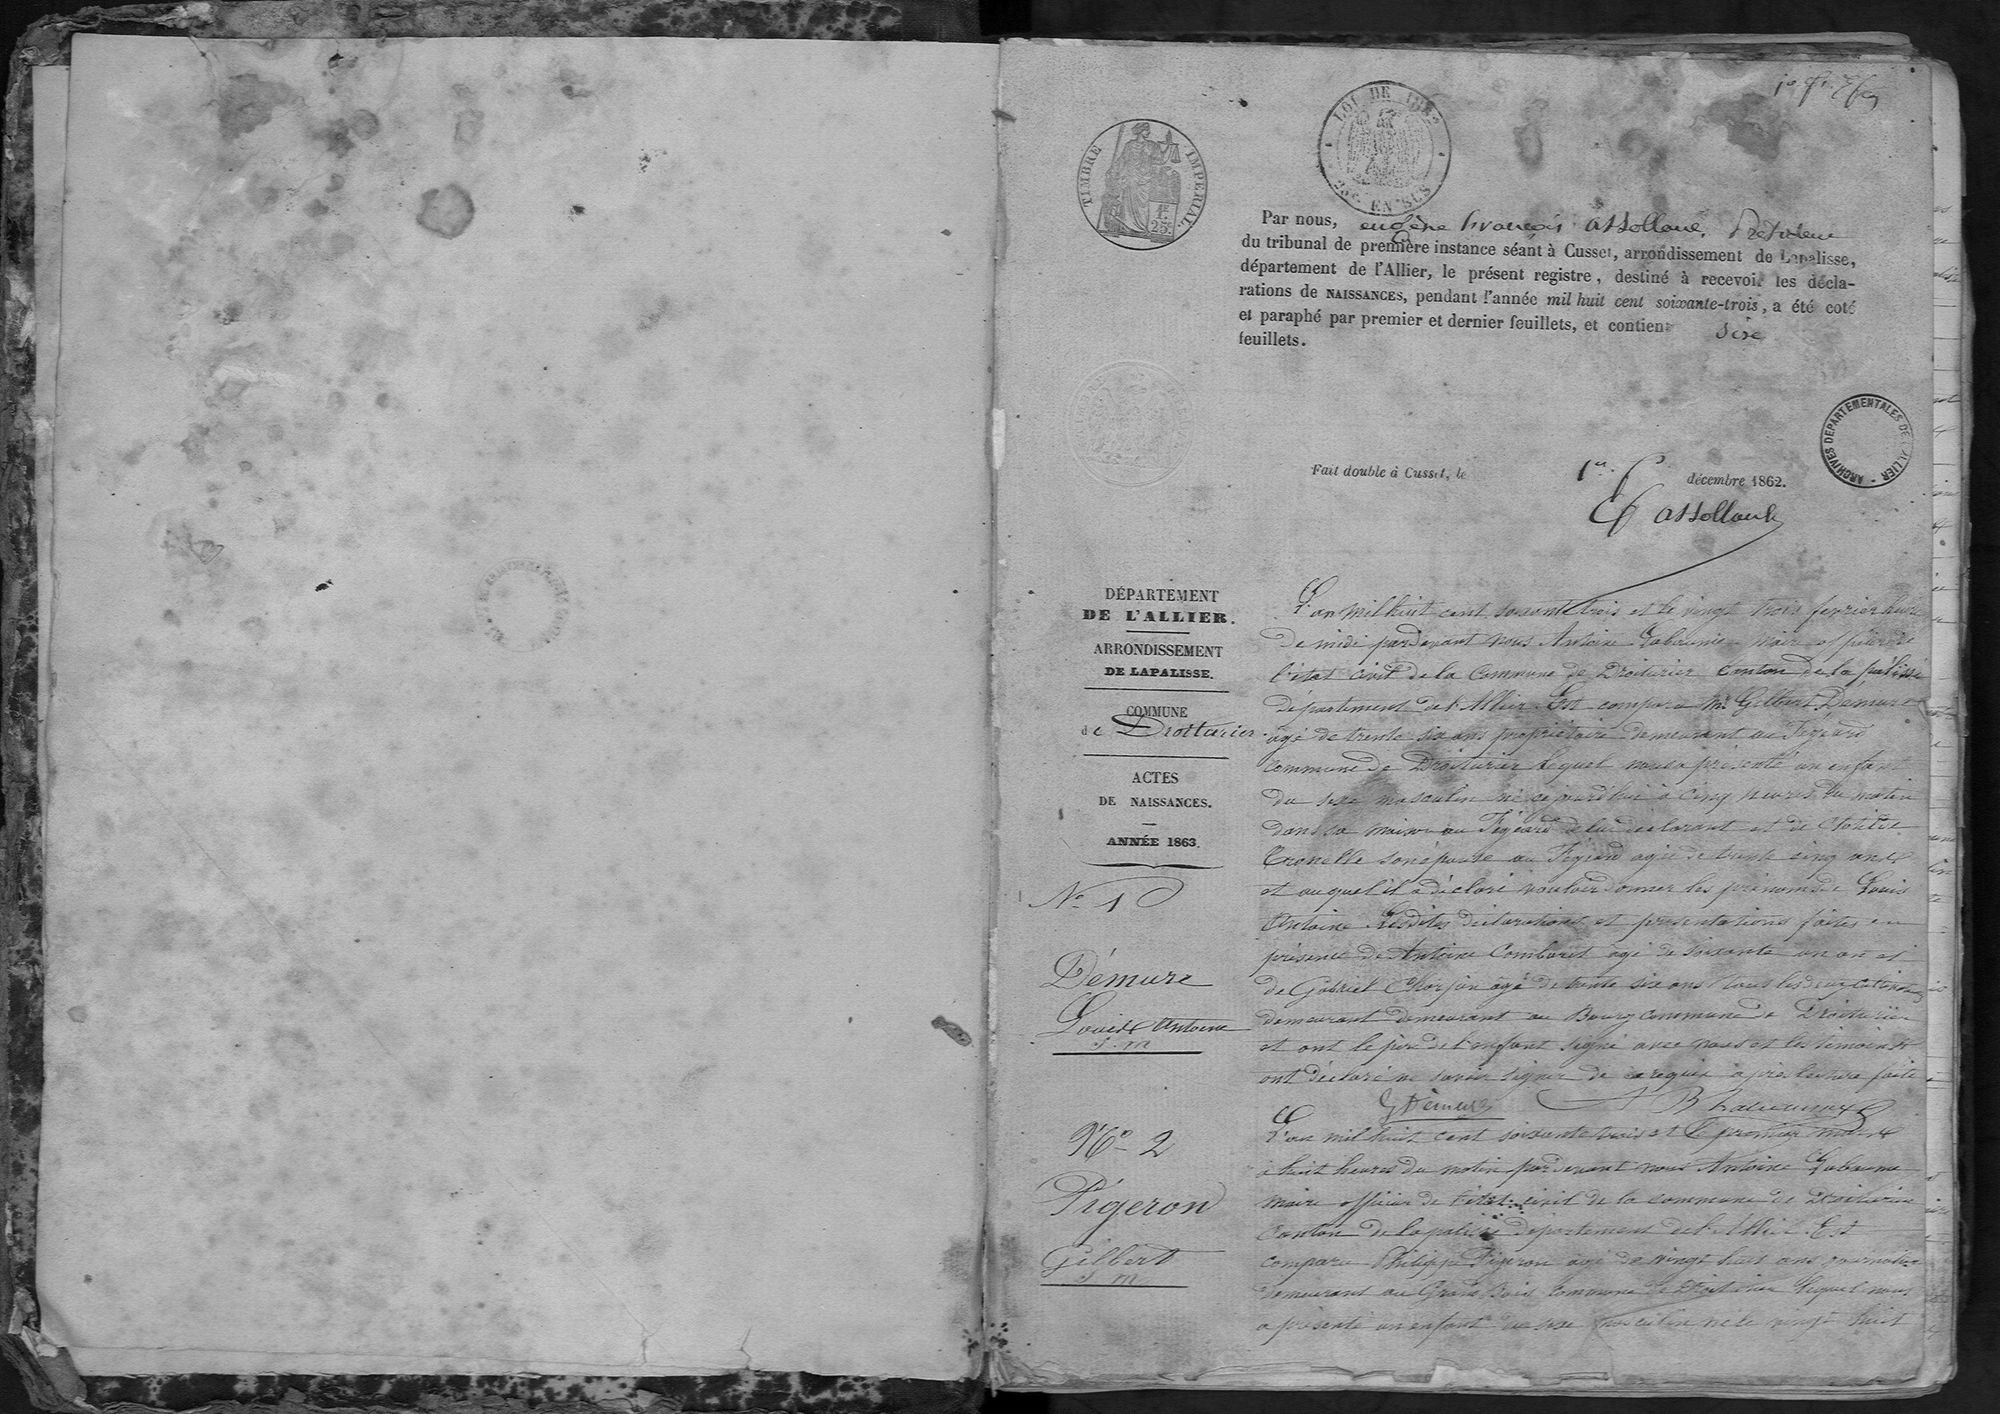 TIMBRE IMPÉRIAL
1F. 25c.
LOI DE
25c. EN SUS
Par nous, eugène françois assollant, Président
du tribunal de première instance séant à Cusset, arrondissement de Lapalisse,
département de l'Allier, le présent registre, destiné à recevoir les décla-
rations de NAISSANCES, pendant l'année mil huit cent soixante-trois, a été coté
et paraphé par premier et dernier feuillets, et contient six
feuillets.
ARCHIVES DEPARTEMENTALES DE L'ALLIER
Fait double à Cusset, le 1er décembre 1862.
assollant
DÉPARTEMENT
DE L'ALLIER.
ARRONDISSEMENT
DE LAPALISSE.
COMMUNE
de Droiturier.
ACTES
DE NAISSANCES.
ANNÉE 1863.
No 1
Démure
Louis Antoine
s. m
L'an mil huit cent soixante trois et le vingt trois février heure
de midi pardevant nous Antoine maire officier de
l'état civil de la Commune de Droiturier Canton de la palisse
département de l'Allier Est comparu Mr Gilbert Demure
agé de trente six ans propriétaire demeurant au
commune de Droiturier lequel nous a présenté un enfant
du sexe masculin né ce jourd'hui à cinq heures du matin
dans sa maison au de lui declarant et de
son épouse au agée de trente cinq ans
et auquel il a déclaré vouloir donner les prénoms de Louis
Antoine Lesdites déclarations et présentations faites en
présence de Antoine Combaret agé de soixante un an et
de Gabriel agé de trente six ans tous les deux
demeurant demeurant au Bourg commune de Droiturier
et ont le père de l'enfant signé avec nous et les témoins
ont declaré ne savoir signer de ce requis après lecture faite
G Démure
No 2
Pigeron
Gilbert
s. m
L'an mil huit cent soixante trois et le premier mars
à huit heures du matin pardevant nous Antoine
maire officier de l'état civil de la commune de Droiturier
Canton de lapalisse département de l'Allier Est
comparu Philippe Pigeron agé de vingt huit ans journalier
demeurant au Grand Bois commune de Droiturier lequel nous
a présenté un enfant du sexe masculin né le vingt huit